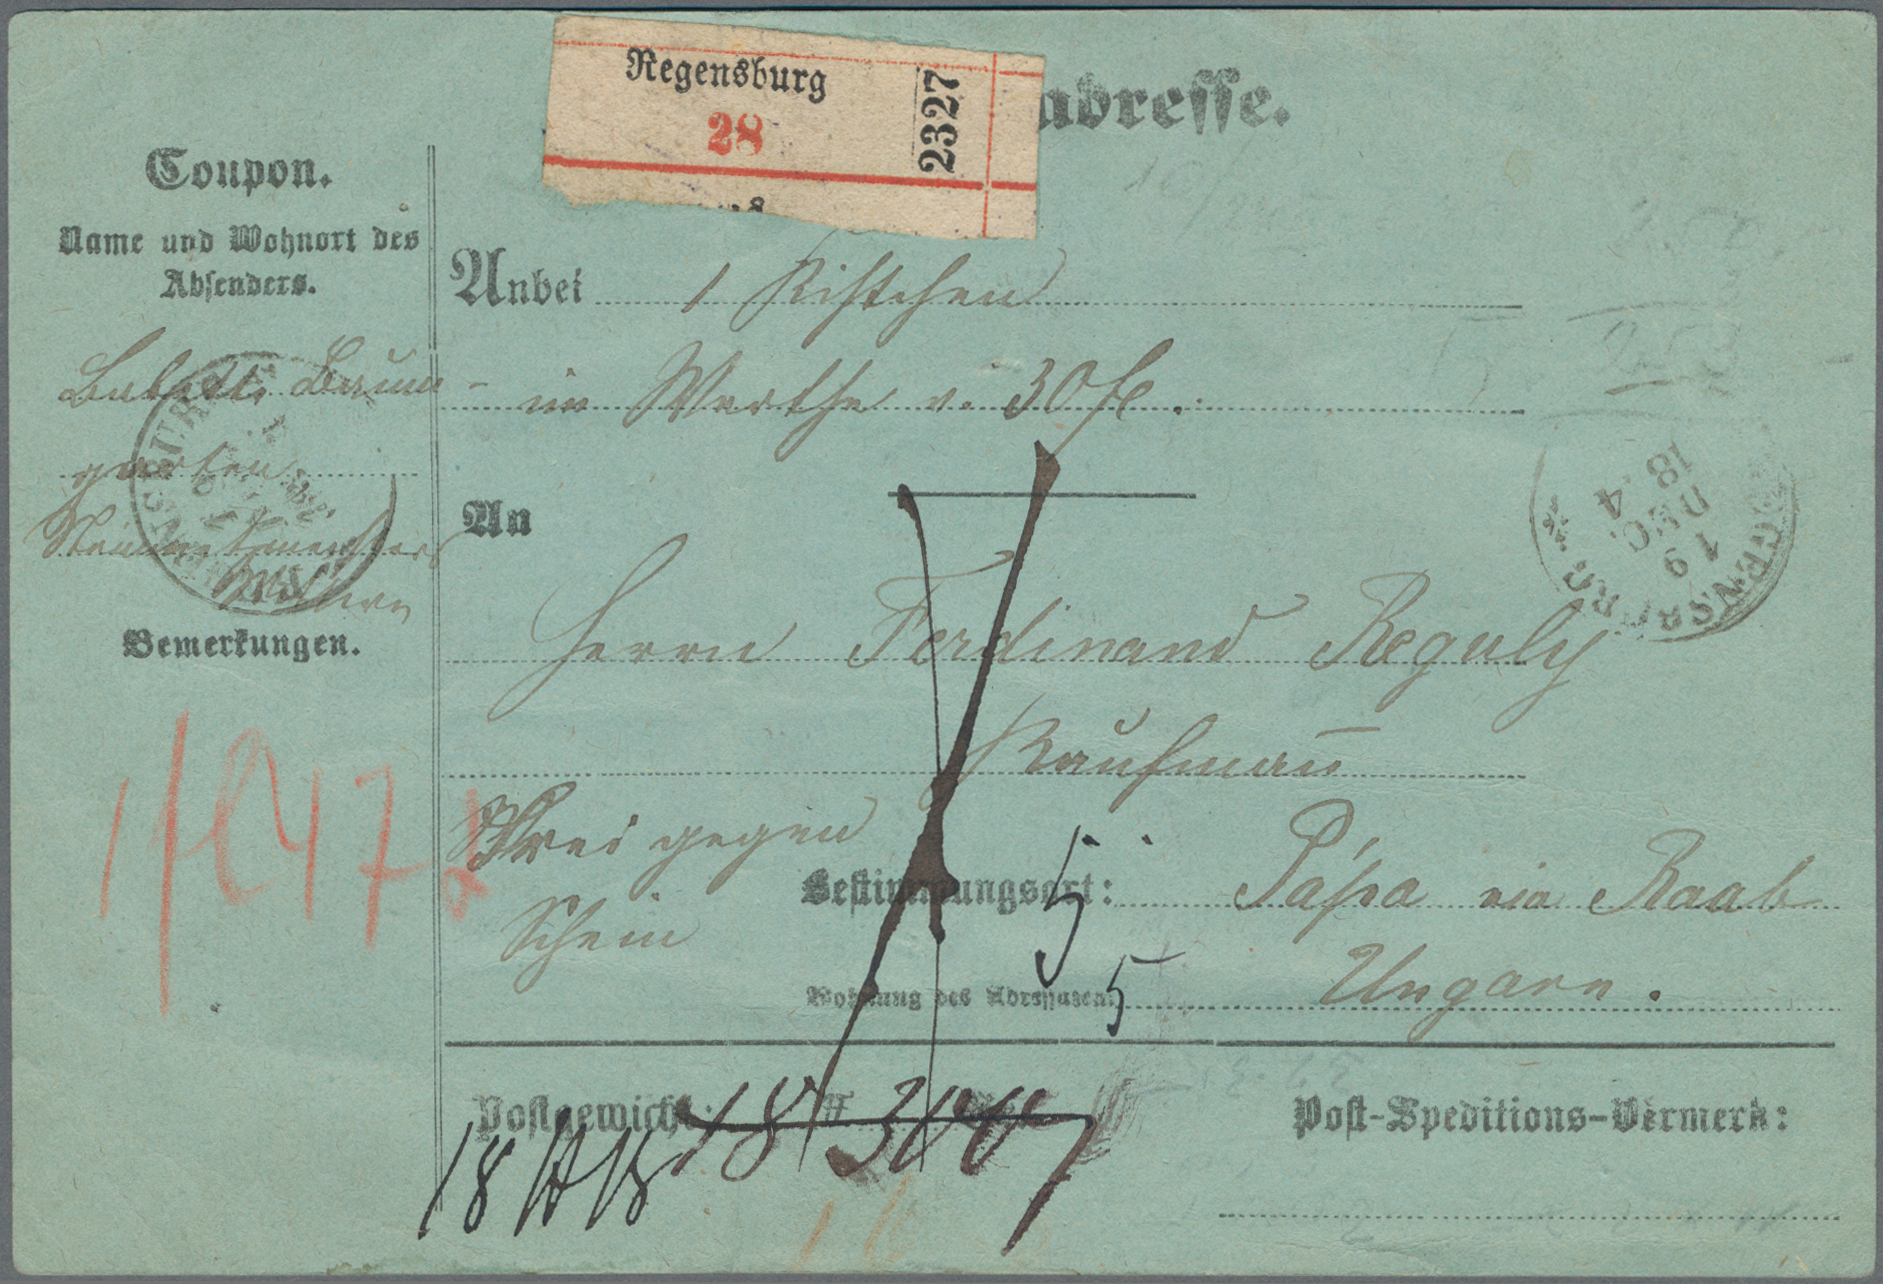 Regensburg
28
2327
adresse.
Coupon.
Name und Wohnort des
Absenders.
Babette Baum-
garten
Bemerkungen.
Anbei 1 Kistchen
im Werthe v. 30 fl.
An
Herrn Ferdinand Reguly
Kaufmañ
Frei gegen
Schein
Bestimmungsort: Pápa via Raab
Wohnung des Adressaten: Ungarn.
5
5
REGENSBURG
19
DEC.
18 4
Postgewicht: 18
18
Post-Speditions-Vermerk: